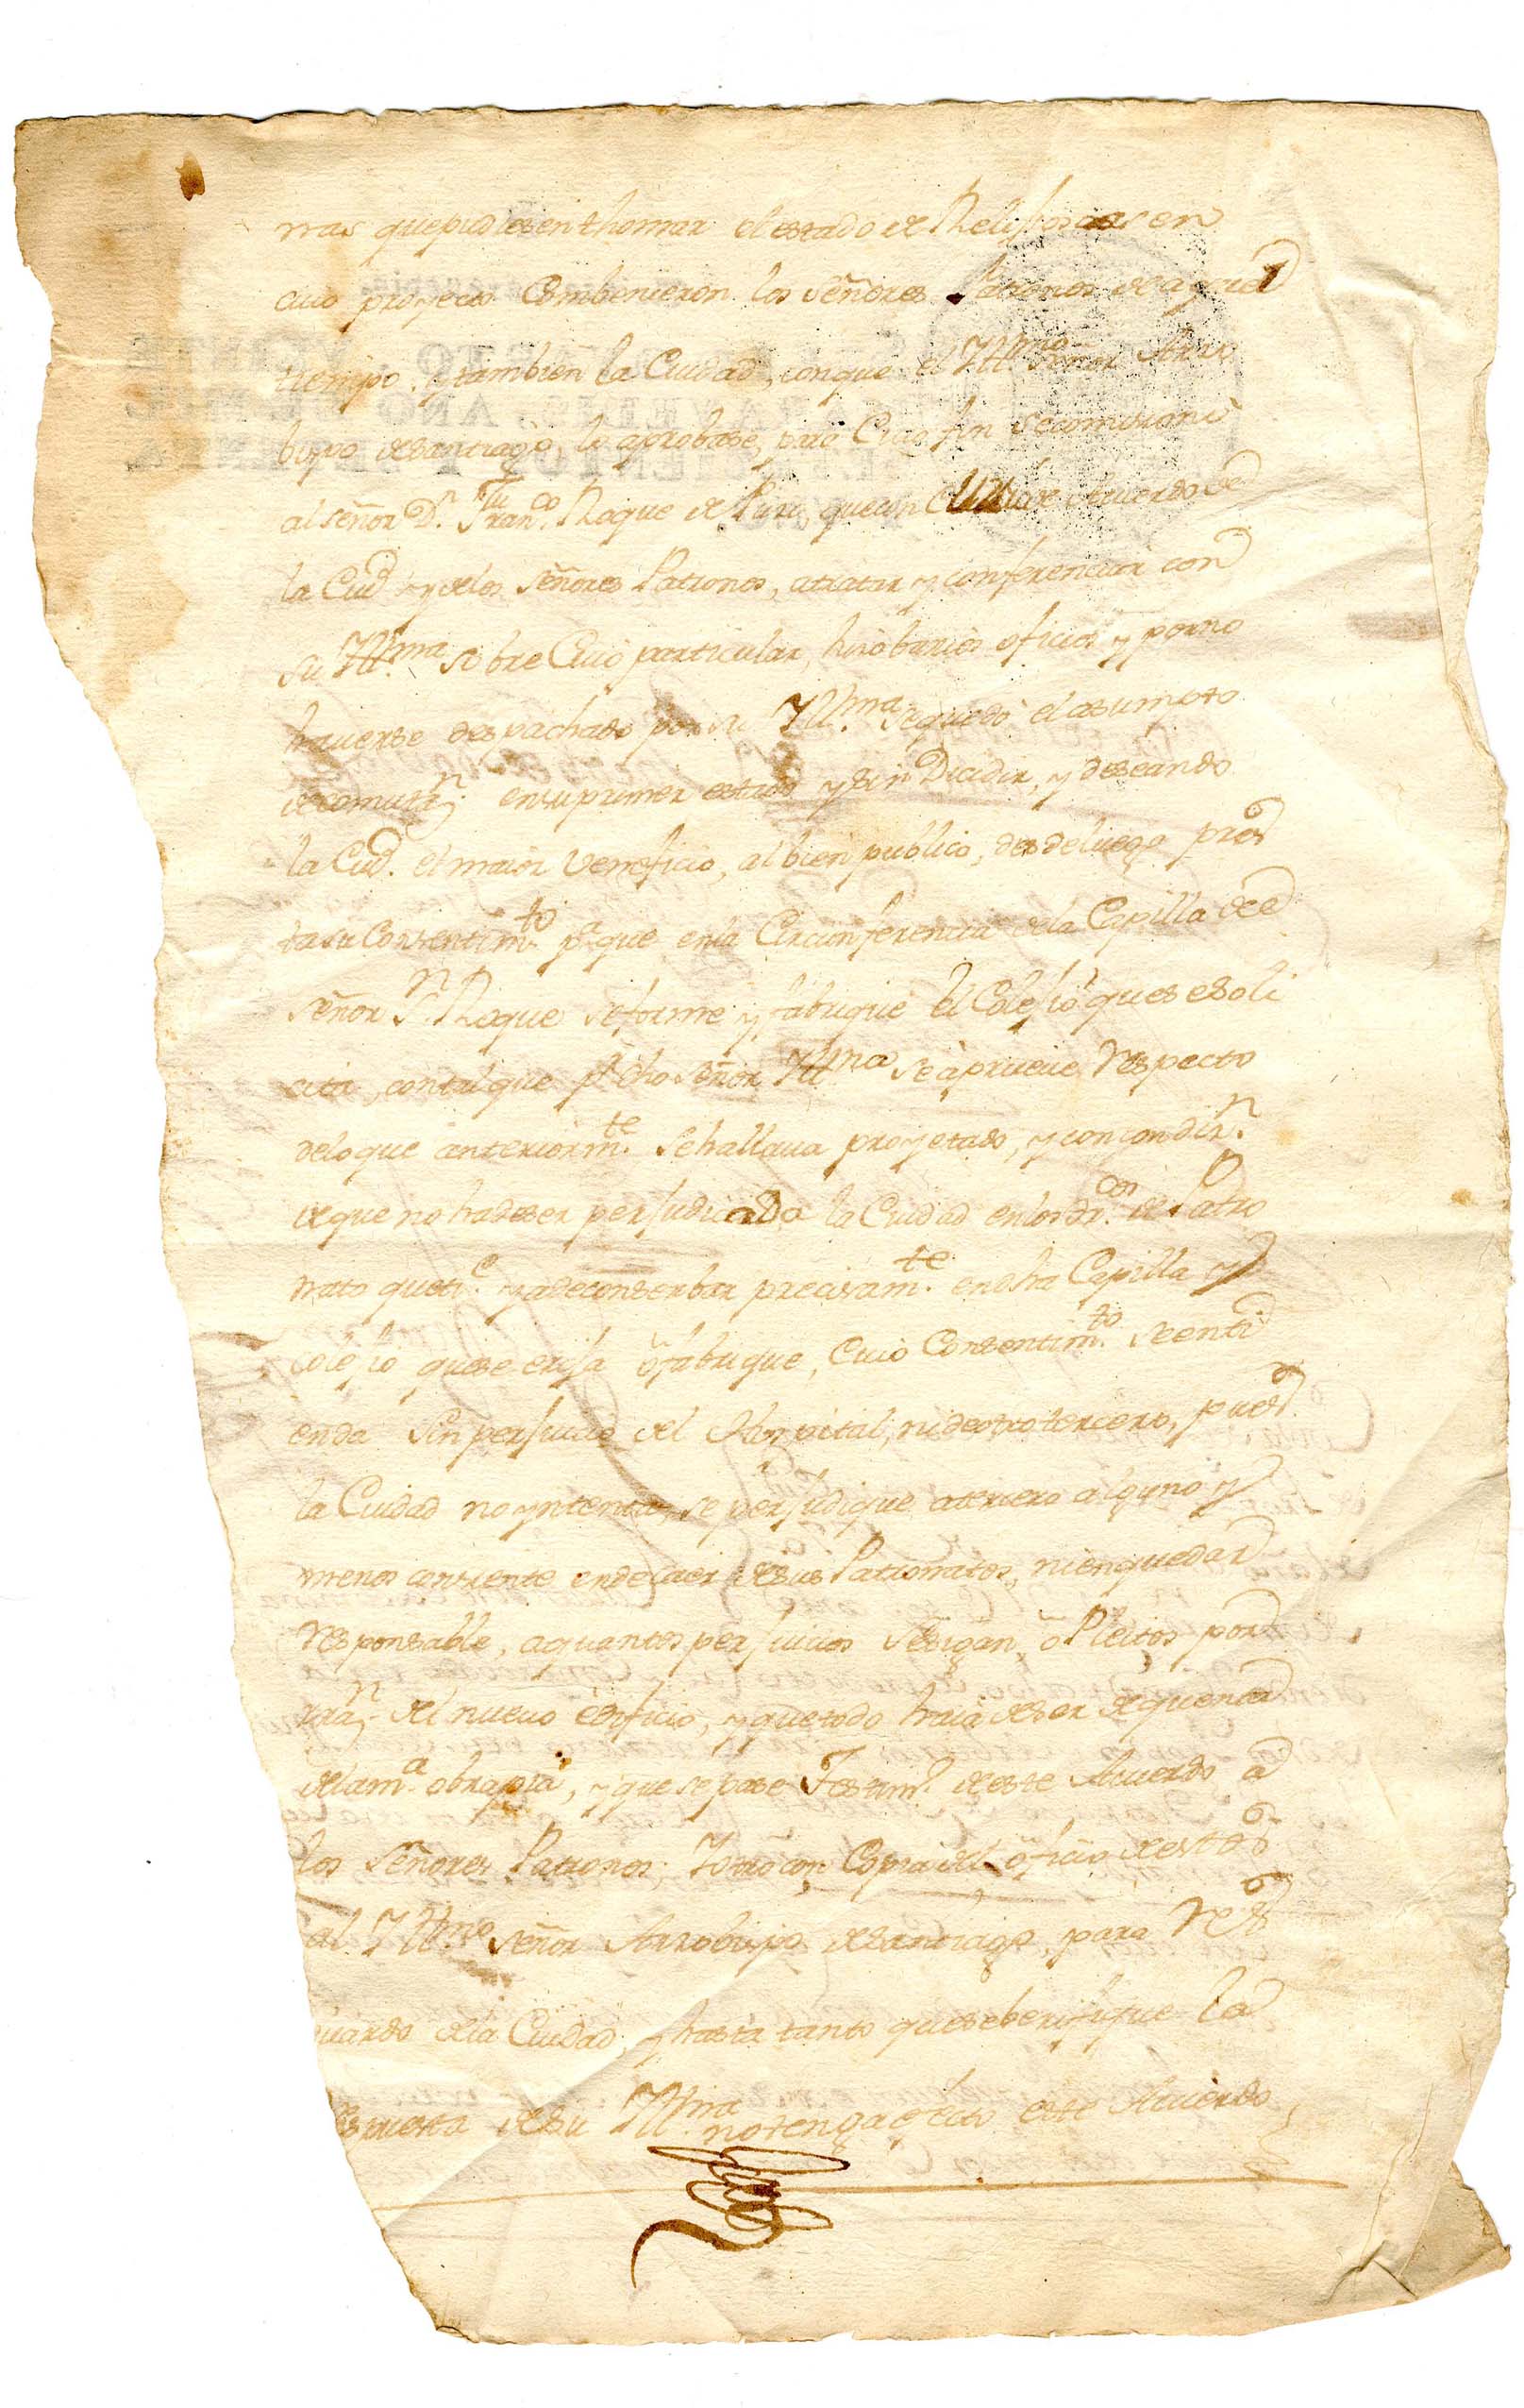 nas que pudiesen thomar el estado de Relijiosas en
cuio proyecto Combenieron los señores Patronos de aquel
tiempo, y tambien la Ciudad, conque el Ill.mo Señor Arzo
bispo de Santiago, lo aprobase, para Cuio fin se comisionò
al señor D.n Fran.co Roque de que con de Acuerdo de
la Ciud y delos señores Patronos, atratar y conferenciar con
su Ill.ma sobre Cuio particular, hizo barios oficios y por no
hauerse despachado por su Ill.ma se quedò el asumpto
de comutaz.n en su primer estado y sin Dicidir, y deseando
la Ciud. el maior Veneficio, al bien publico, desde luego pres
ta su Consentim.to p.a que en la Circunferencia dela Capilla de
señor S.n Roque se forme y fabrique el Colejio que se soli
cita, con tal que p.r dho señor Ill.mo se aprueue respecto
delo que anteriorm.te se hallaua proyetado, y con condiz.n
de que no ha de ser perjudicada la Ciudad en los dr.cos de Patro
nato que ti.e y a de conserbar precisam.te en dha Capilla y
colejio que se erija ò fabrique, Cuio Consentim.to se enti
enda sin perjuicio del Hospital, ni de otro tercero, pues
la Ciudad no yntenta, se perjudique a tercero alguno y
menos consiente en decaer de sus Patronatos, ni en quedar
responsable, a quantos perjuicios se sigan, ò Pleitos por
raz.n del nuevo edificio, y que todo haia de ser de quenta
dela m.a obra pia, y que se pase Testim.o de este Acuerdo a
los señores Patronos; Y otro con Copia del oficio de estos
al Ill.mo señor Arzobispo de Santiago, para res
guardo dela Ciudad, y hasta tanto que se berifique la
respuesta de su Ill.ma no tenga efecto este Acuerdo